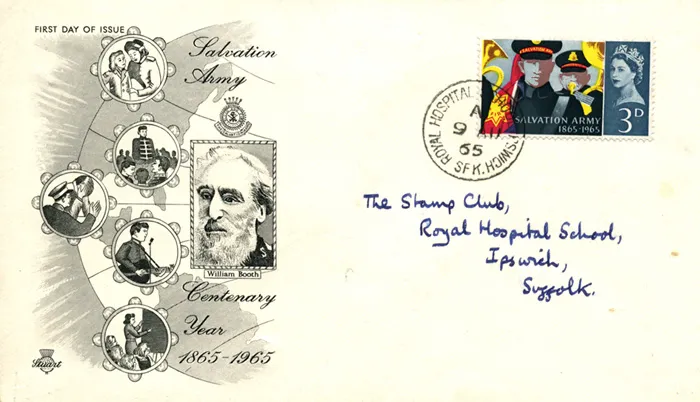 FIRST DAY OF ISSUE
Salvation
Army
William Booth
Centenary
Year
1865-1965
Stuart
SALVATION ARMY
1865-1965
3D
ROYAL HOSPITAL
A
9
65
IPSWICH, SFK.
The Stamp Club,
Royal Hospital School,
Ipswich,
Suffolk.